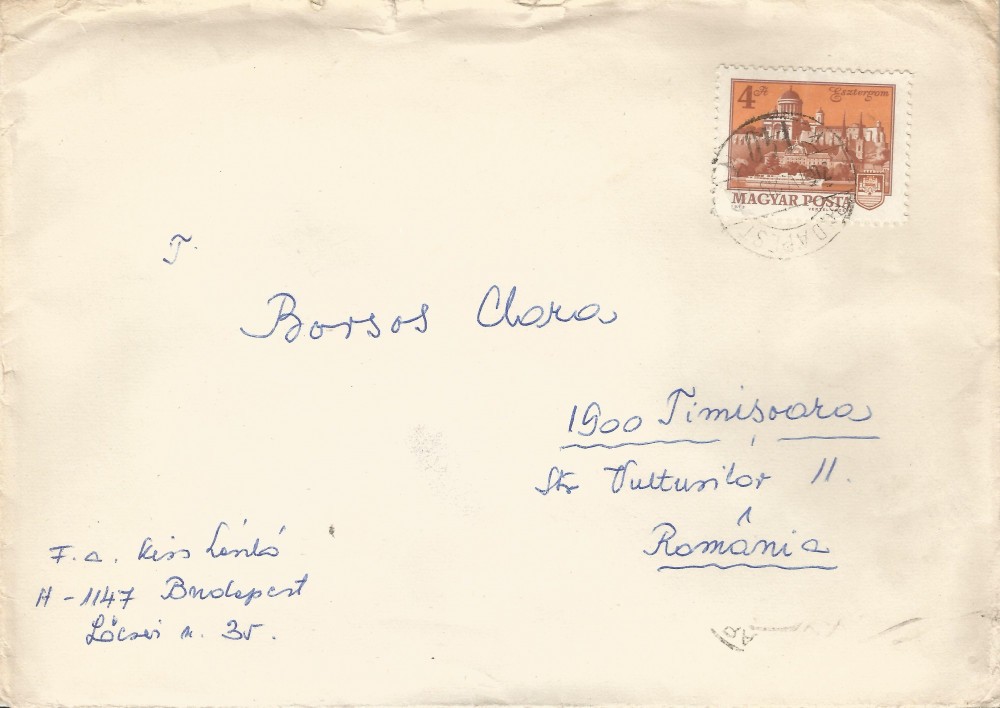 4 Ft
Esztergom
MAGYAR POSTA
BUDAPEST
T.
Borsos Clara
1900 Timișoara
Str Vulturilor 11.
România
F.a. Kiss László
H-1147 Budapest
Lőcsei u. 35.